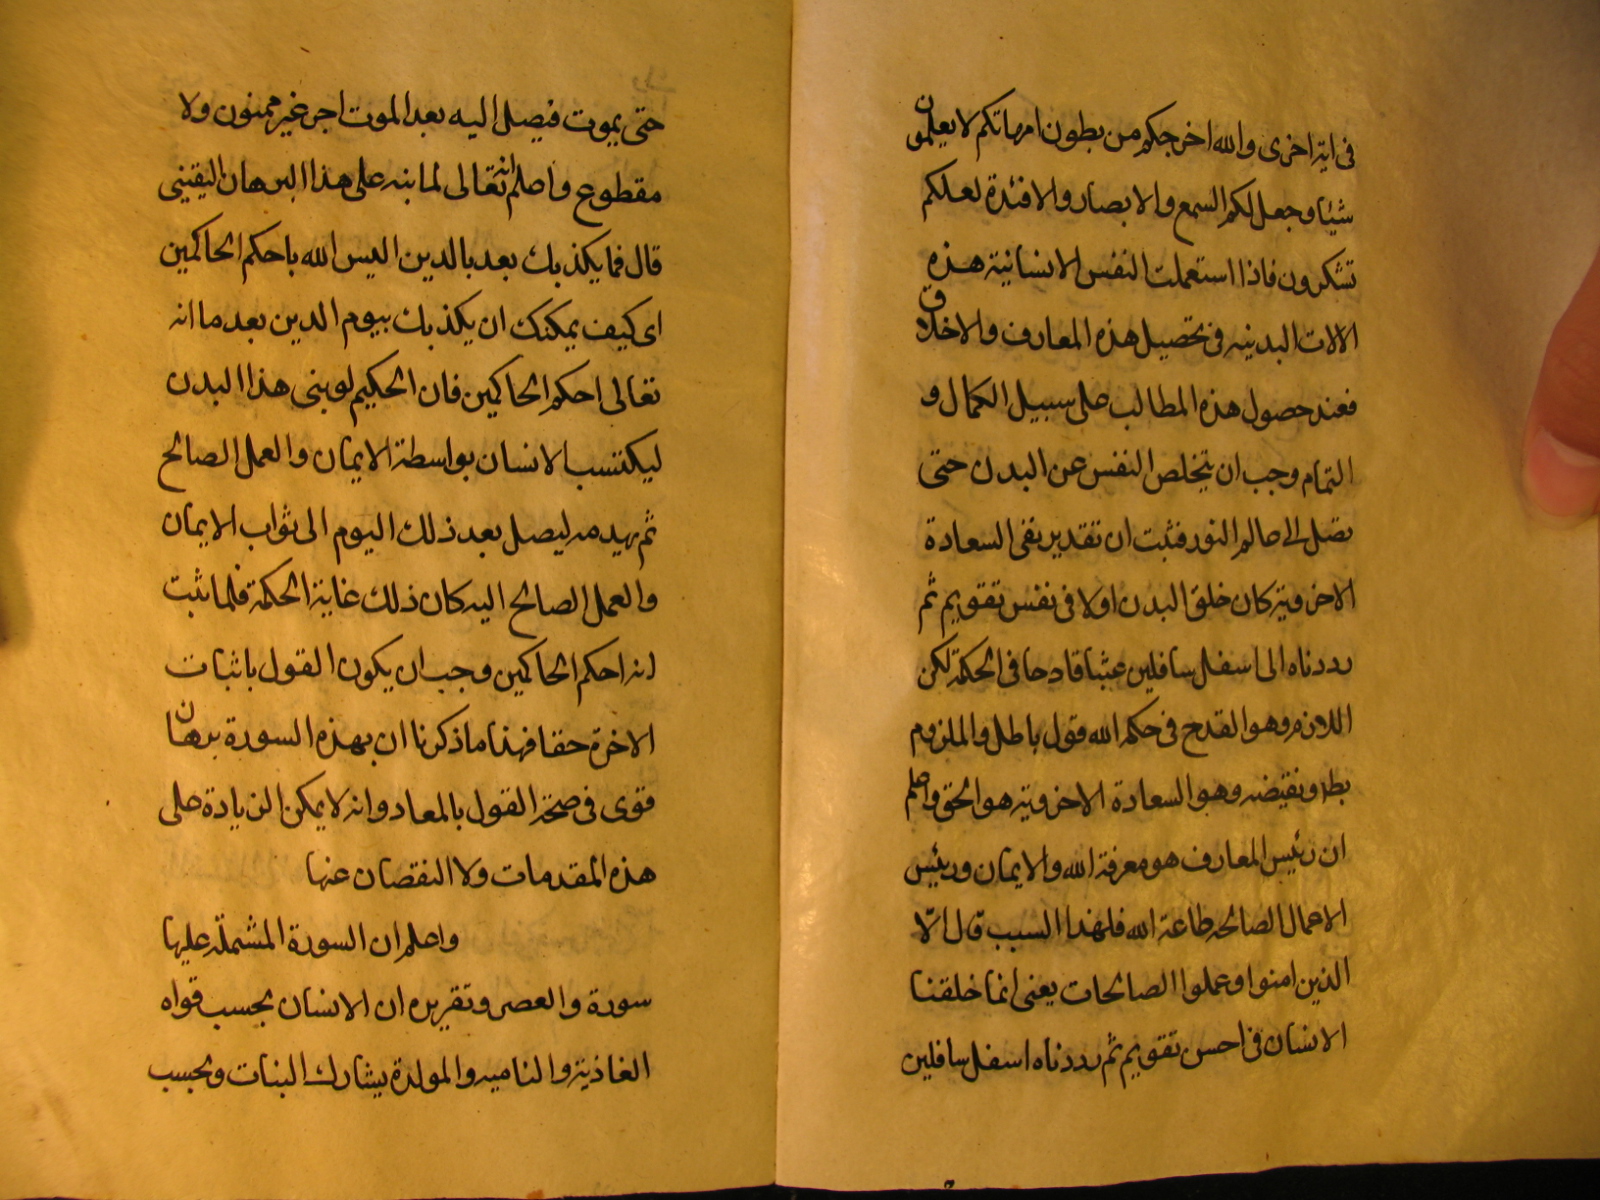 فى اية اخرى والله اخرجكم من بطون امهاتكم لا يعلمون
شيئا وجعل لكم السمع والابصار والافئدة لعلكم
تشكرون فاذا استعملت النفس الانسانية هذه
الالات البدنيه فى تحصيل هذه المعارف والاخلاق
فعند حصول هذه المطالب على سبيل الكمال و
التمام وجب ان يتخلص النفس عن البدن حتى
تصل الى عالم النور فثبت ان تقدير نفى السعادة
الاخروية كان خلق البدن اولا فى نفس تقويم ثم
رددناه الى اسفل سافلين عبثا قادحا فى الحكمة لكن
اللازم وهو القدح فى حكم الله قول باطل والملزوم
بط ونقيضه وهو السعادة الاخروية هو الحق واعلم
ان رئيس المعارف هو معرفة الله والايمان ورئيس
الاعمال الصالحه طاعة الله فلهذا السبب قال الّا
الذين امنوا وعملوا الصالحات يعنى انما خلقنا
الانسان فى احسن تقويم ثم رددناه اسفل سافلين
حتى يموت فيصل اليه بعد الموت اجر غير ممنون ولا
مقطوع واعلم انه تعالى لما بنه على هذا البرهان اليقينى
قال فما يكذبك بعد بالدين اليس الله باحكم الحاكمين
اى كيف يمكنك ان يكذبك بيوم الدين بعد ما انه
تعالى احكم الحاكمين فان الحكيم لو بنى هذا البدن
ليكتسب الانسان بواسطة الايمان والعمل الصالح
ثم يهدمه ليصل بعد ذلك اليوم الى ثواب الايمان
والعمل الصالح اليه كان ذلك غاية الحكمة فلما ثبت
انه احكم الحاكمين وجب ان يكون القول باثبات
الاخرة حقا فهذا ما ذكرنا ان بهذه السورة برهان
قوى فى صحة القول بالمعاد وانه لا يمكن الزيادة على
هذه المقدمات ولا النقصان عنها
واعلم ان السورة المشتملة عليها
سورة والعصر وتقريره ان الانسان بحسب قواه
الغاذية والناميه والمولدة يشارك النبات وبحسب